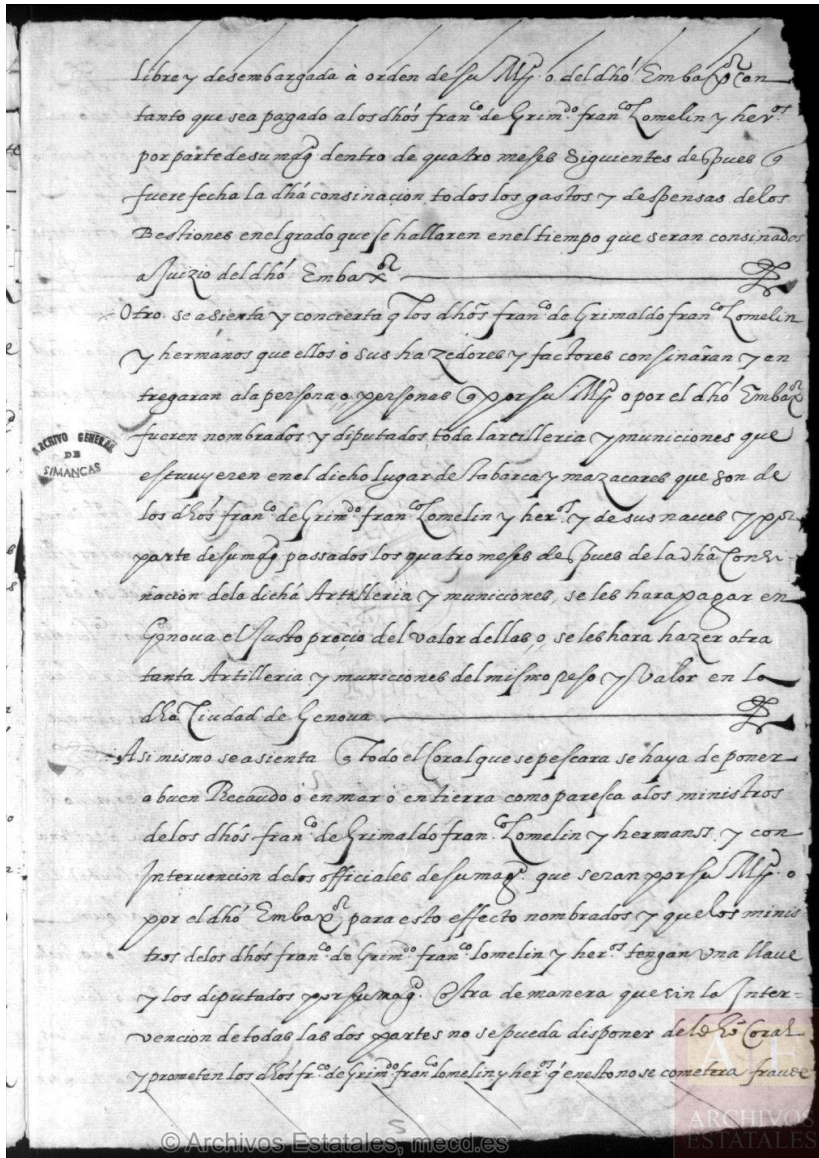 libre y desembargada à orden de su Mg.d o del dhō Embax.or con
tanto que sea pagado a los dhōs fran.co de Grim.do fran.co Lomelin y her.os
por parte de su mag.d dentro de quatro meses siguientes despues q
fuere fecha la dhā consinacion todos los gastos y despensas de los
Bestiones en el grado que se hallaren en el tiempo que seran consinados
a Juizio del dhō Embax.or
Otro. se asienta y concierta q los dhōs fran.co de Grimaldo fran.co Lomelin
y hermanos que ellos o sus hazedores y factores consinaran y en
tregaran a la persona o personas q por su Mg.d o por el dhō Embax.or
fueren nombrados y diputados toda la rtilleria y municiones que
estuvyeren en el dicho lugar de tabarca y mazacares que son de
los dhōs fran.co de Grim.do fran.co Lomelin y her.os y de sus naves y por
parte de su mag.d passados los quatro meses despues de la dhā Consi-
ñacion de la dichā Artilleria y municiones, se les hara pagar en
Genova el Justo preçio del valor dellas, o, se les hara hazer otra
tanta Artilleria y municiones del mismo peso y valor en la
dhā Ciudad de Genova
Asi mismo se asienta q todo el Coral que se pescara se haya de poner
a buen Recaudo ò en mar ò en tierra como paresca a los ministros
de los dhōs fran.co de Grimaldo fran.co Lomelin y hermanss. y con
Intervencion de los officiales de su mag.d que seran por su Mg.d o
por el dhō Embax.or para esto effecto nombrados y que los minis
tros de los dhōs fran.co de Grim.do fran.co lomelin y her.os tengan una llave
y los diputados por su mag.d Otra de manera que sin la Inter-
vencion de todas las dos partes no se pueda disponer del dhō Coral
y prometen los dhōs fr.co de Grim.do fran.co lomelin y her.os q̄ en esto no se cometera fraude
ARCHIVO GENERAL
DE
SIMANCAS
A E
ARCHIVOS
ESTATALES
© Archivos Estatales, mecd.es